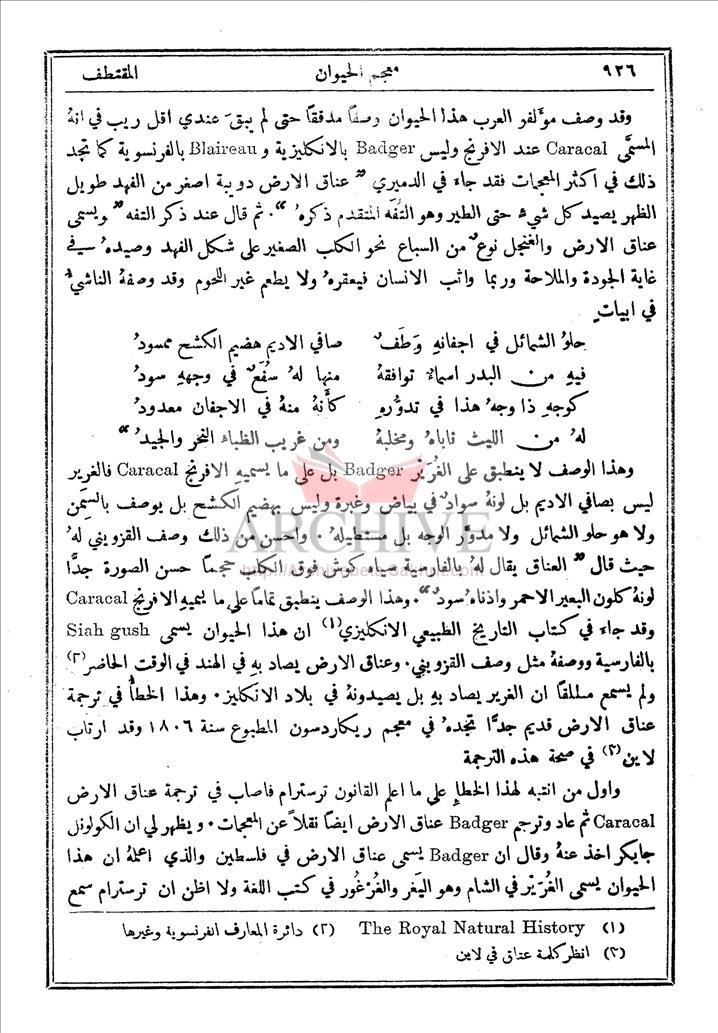 ٩٢٦ معجم الحيوان المقتطف
وقد وصف مؤلفو العرب هذا الحيوان وصفًا مدققًا حتى لم يبقَ عندي اقل ريب في انهُ
المسمَّى Caracal عند الافرنج وليس Badger بالانكليزية و Blaireau بالفرنسوية كما تجد
ذلك في اكثر المعجمات فقد جاء في الدميري "عناق الارض دويبة اصغر من الفهد طويل
الظهر يصيد كل شيءٍ حتى الطير وهو التُّفَه المتقدم ذكرهُ". ثم قال عند ذكر التفه "ويسمى
عناق الارض والغنجل نوعٌ من السباع نحو الكلب الصغير على شكل الفهد وصيدهُ في
غاية الجودة والملاحة وربما واثب الانسان فيعقرهُ ولا يطعم غير اللحوم وقد وصفهُ الناشيُّ
في ابيات
حلوُ الشمائل في اجفانهِ وَطَفٌ صافي الاديم هضيم الكشح ممسودُ
فيهِ من البدر اسماءٌ توافقهُ منها لهُ سُفَعٌ في وجههِ سودُ
كوجهِ ذا وجهُ هذا في تدوُّرهِ كأَنهُ منهُ في الاجفان معدودُ
لهُ من الليث ناباهُ ومخلبهُ ومن غرير الظباء النحر والجيدُ"
وهذا الوصف لا ينطبق على الغُرَيْر Badger بل على ما يسميهِ الافرنج Caracal فالغرير
ليس بصافي الاديم بل لونهُ سوادٌ في بياض وغبرة وليس بهضيم الكشح بل يوصف بالسِّمَن
ولا هو حلو الشمائل ولا مدوَّر الوجه بل مستطيلهُ. واحسن من ذلك وصف القزويني لهُ
حيث قال "العناق يقال لهُ بالفارسية سياه كوش فوق الكلب حجمًا حسن الصورة جدًّا
لونهُ كلون البعير الاحمر واذناهُ سود". وهذا الوصف ينطبق تمامًا على ما يسميهِ الافرنج Caracal
وقد جاءَ في كتاب التاريخ الطبيعي الانكليزي(١) ان هذا الحيوان يسمى Siah gush
بالفارسية ووصفهُ مثل وصف القزويني. وعناق الارض يصاد بهِ في الهند في الوقت الحاضر(٢)
ولم يسمع مطلقًا ان الغرير يصاد بهِ بل يصيدونهُ في بلاد الانكليز. وهذا الخطأُ في ترجمة
عناق الارض قديم جدًّا تجدهُ في معجم ريكاردسون المطبوع سنة ١٨٠٦ وقد ارتاب
لاين(٣) في صحة هذه الترجمة
واول من انتبه لهذا الخطإِ على ما اعلم القانون ترسترام فاصاب في ترجمة عناق الارض
Caracal ثم عاد وترجم Badger عناق الارض ايضًا نقلاً عن المعجمات. ويظهر لي ان الكولونل
جايكر اخذ عنهُ وقال ان Badger يسمى عناق الارض في فلسطين والذي اعلمهُ ان هذا
الحيوان يسمى الغُرَيْر في الشام وهو اليَغر والغُرْغُور في كتب اللغة ولا اظن ان ترسترام سمع
(١) The Royal Natural History (٢) دائرة المعارف الفرنسوية وغيرها
(٣) انظر كلمة عناق في لاين
ARCHIVE